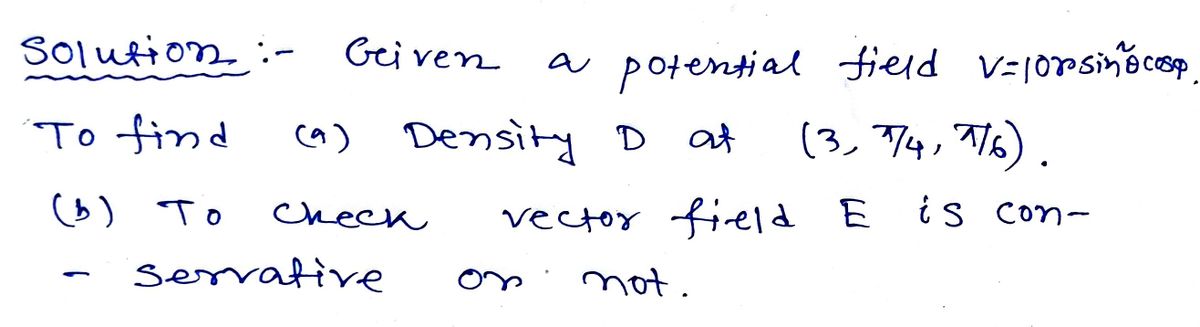 Solution :- Given a potential field V=10rsin²θcosφ.
To find (a) Density D at (3, π/4, π/6).
(b) To check vector field E is con-
- servative or not.